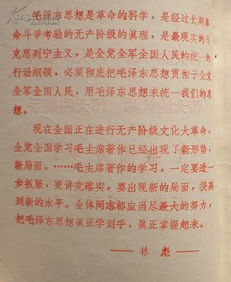 毛泽东思想是革命的科学，是经过长期革
命斗争考验的无产阶级的真理，是最现实的马
克思列宁主义，是全党全军全国人民的统一的
行动纲领，必须彻底把毛泽东思想贯彻于全党
全军全国人民，用毛泽东思想来统一我们的思
想。
现在全国正在进行无产阶级文化大革命，
全党全国学习毛主席著作已经出现了新形势，
新局面。……毛主席著作的学习，一定要进一
步抓紧，更讲究落实，要出现新的局面，提高
到新的水平。全体同志都应当尽最大的努力，
把毛泽东思想真正学到手，真正掌握起来。
——林彪——